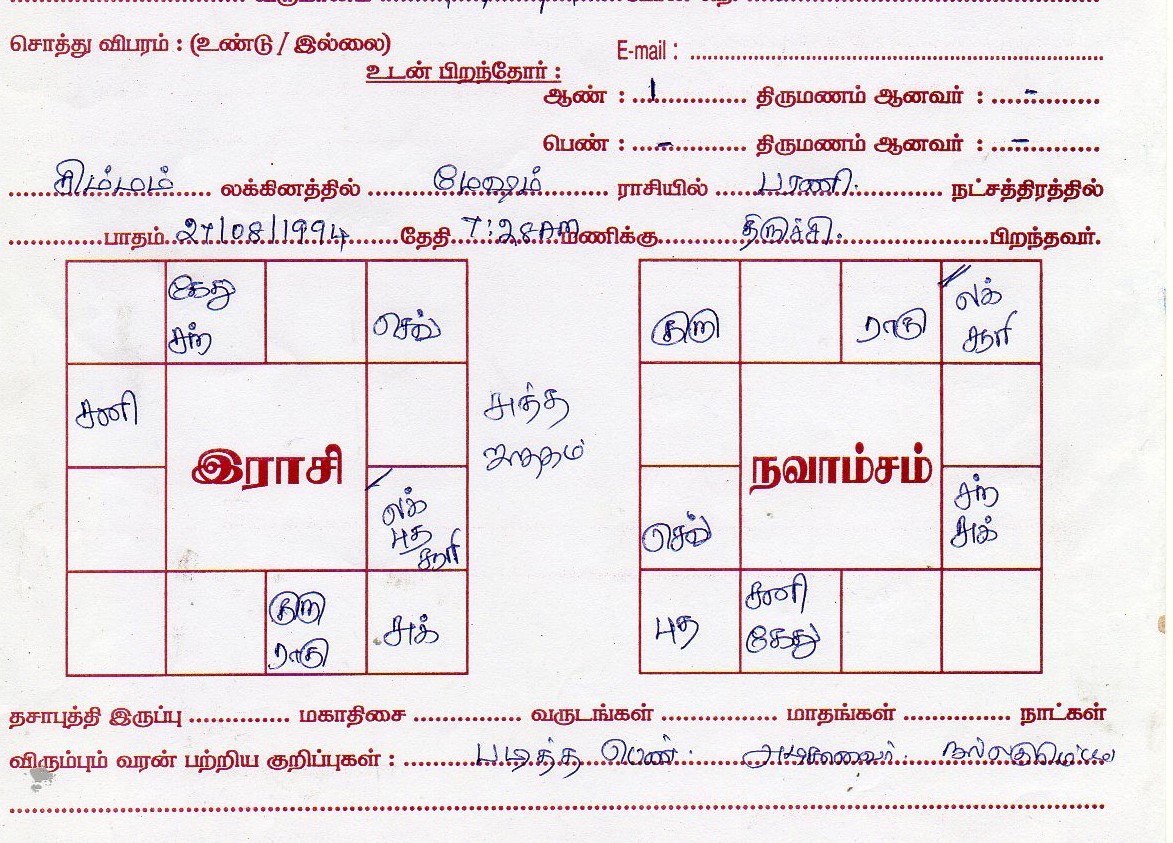 சொத்து விபரம் : (உண்டு / இல்லை)
E-mail : ................
உடன் பிறந்தோர் :
ஆண் : 1 திருமணம் ஆனவர் : -
பெண் : - திருமணம் ஆனவர் : -
சிம்மம் லக்கினத்தில் மேஷம் ராசியில் பரணி. நட்சத்திரத்தில்
பாதம் 27/08/1994 தேதி 7:28AM மணிக்கு திருச்சி. பிறந்தவர்.
கேது
சந்
செவ்
சனி
இராசி
லக்
புத
சூரி
குரு
ராகு
சுக்
குரு
ராகு
லக்
சூரி
நவாம்சம்
செவ்
சந்
சுக்
புத
சனி
கேது
தசாபுத்தி இருப்பு ............. மகாதிசை ............. வருடங்கள் ............. மாதங்கள் ............. நாட்கள்
விரும்பும் வரன் பற்றிய குறிப்புகள் : படித்த பெண்.